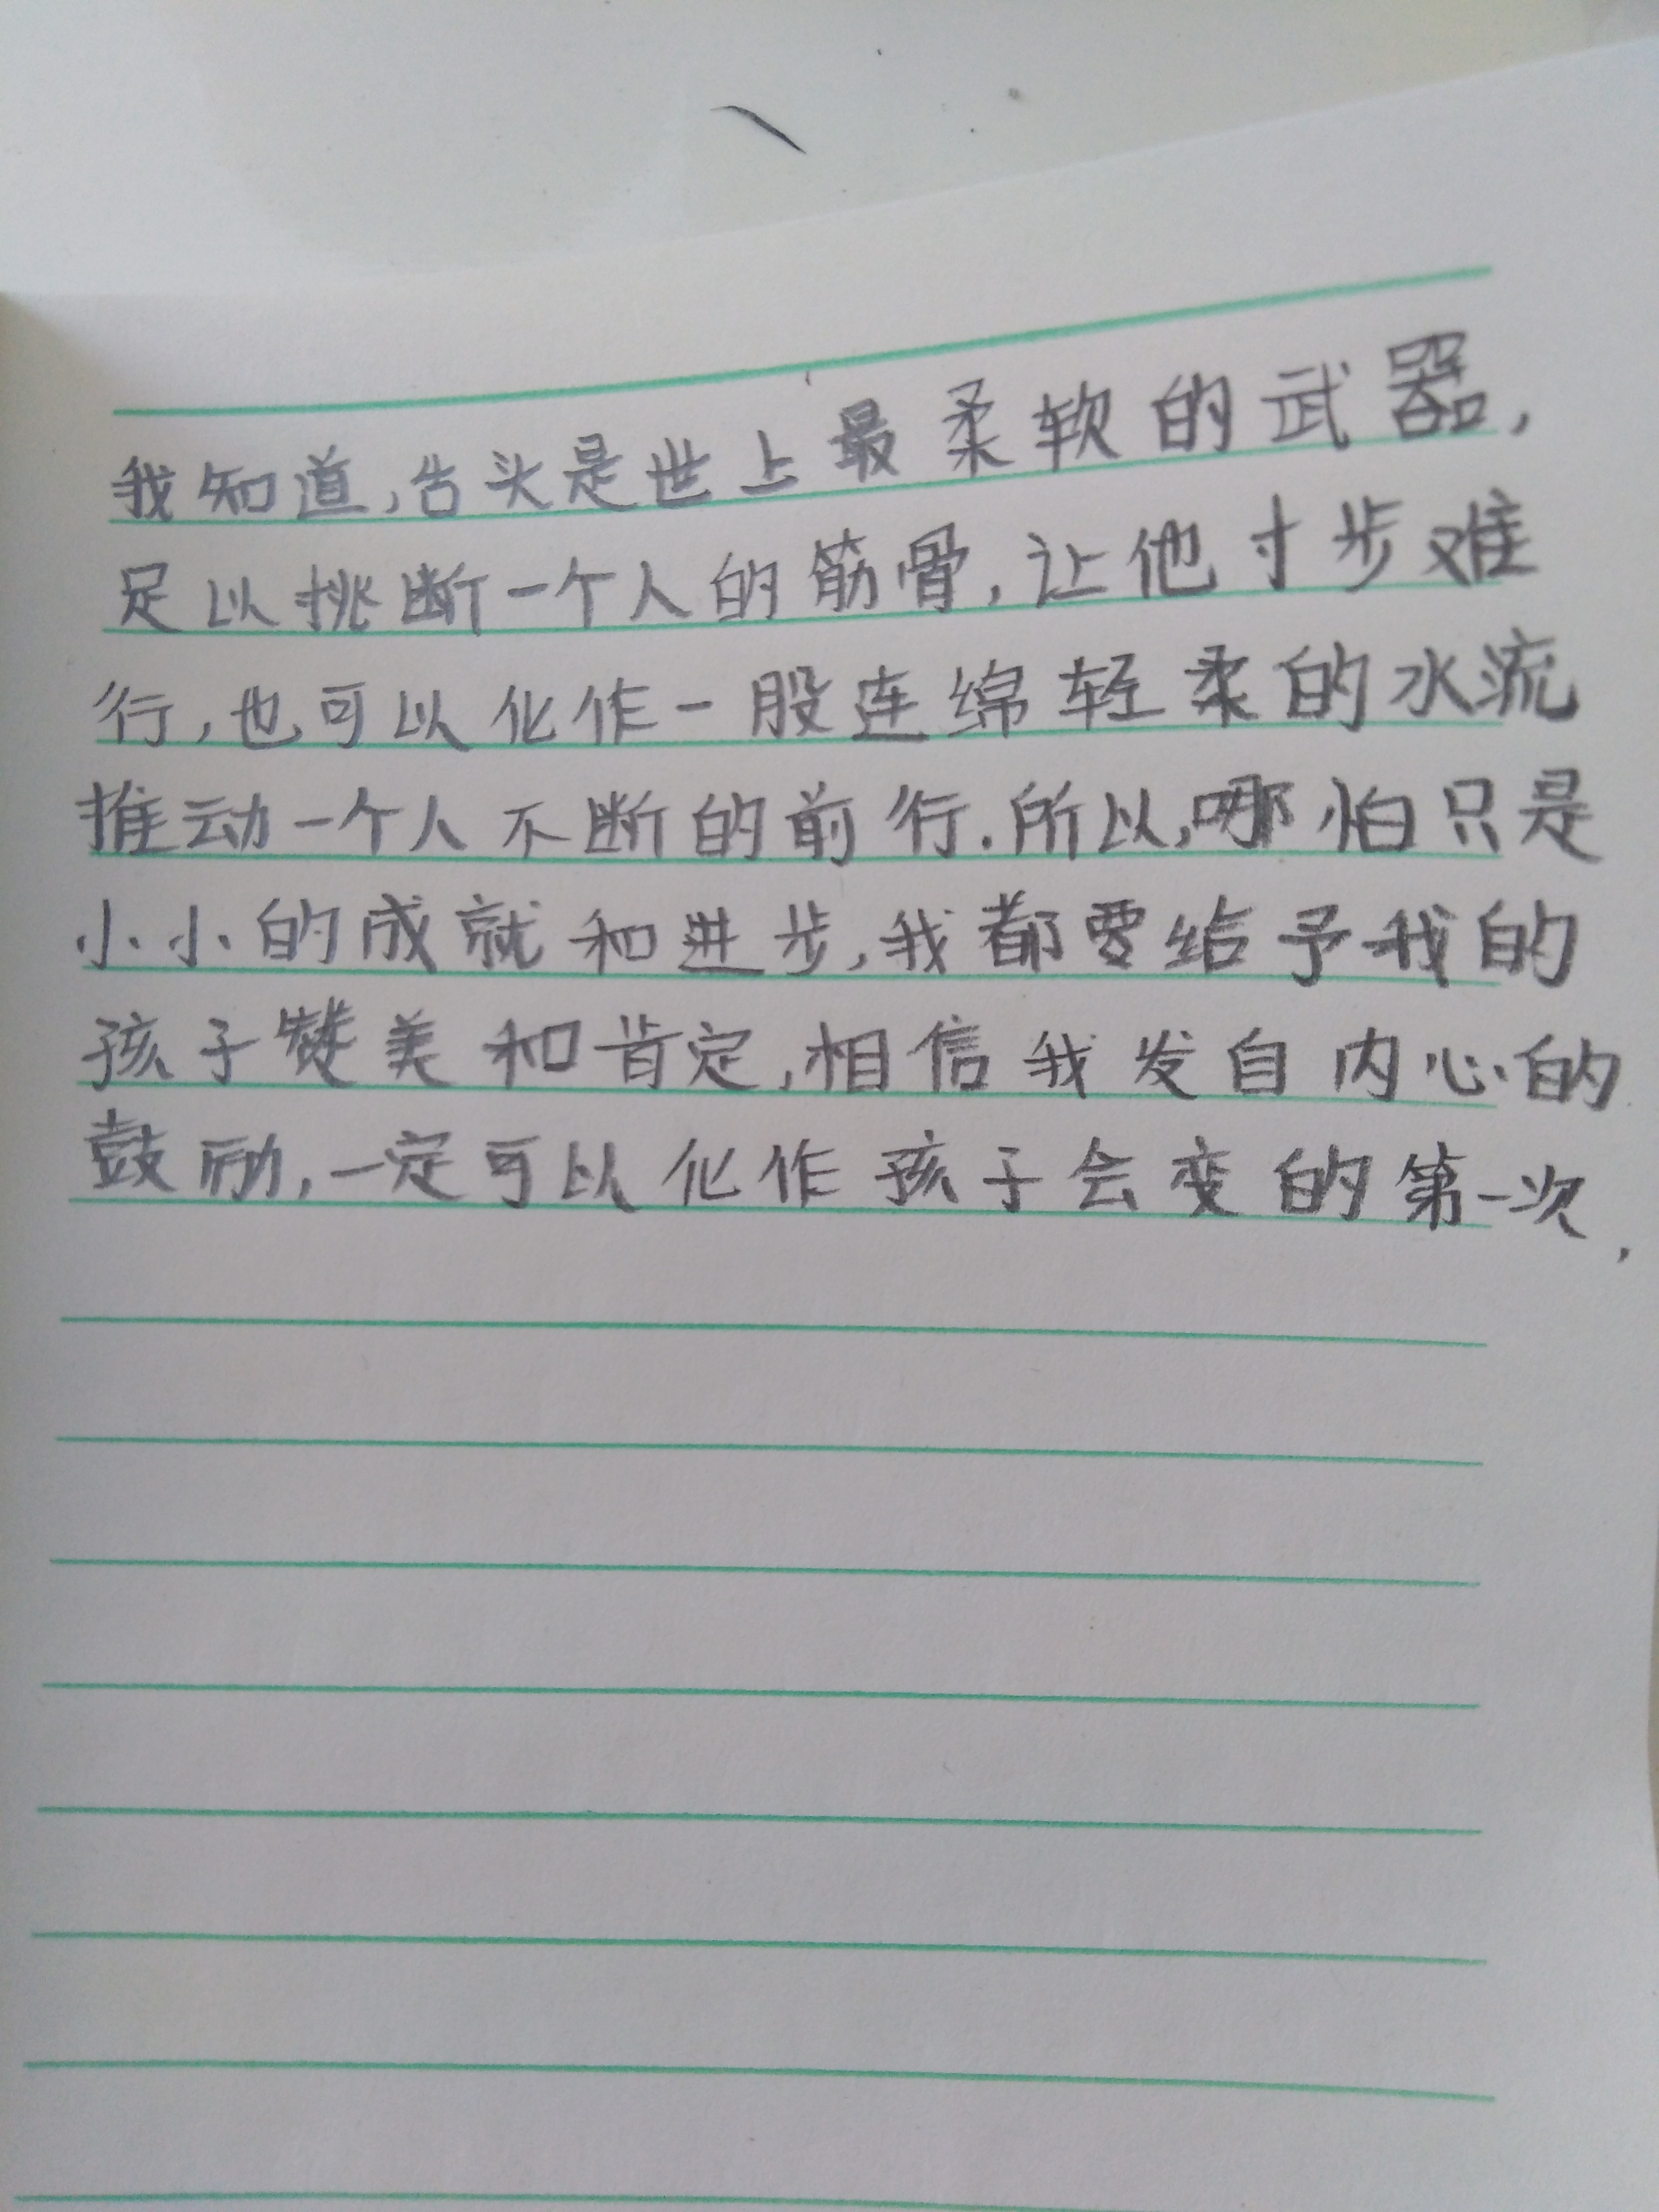 我知道,舌头是世上最柔软的武器,
足以挑断一个人的筋骨,让他寸步难
行,也可以化作一股连绵轻柔的水流
推动一个人不断的前行.所以,哪怕只是
小小的成就和进步,我都要给予我的
孩子赞美和肯定,相信我发自内心的
鼓励,一定可以化作孩子会变的第一次,